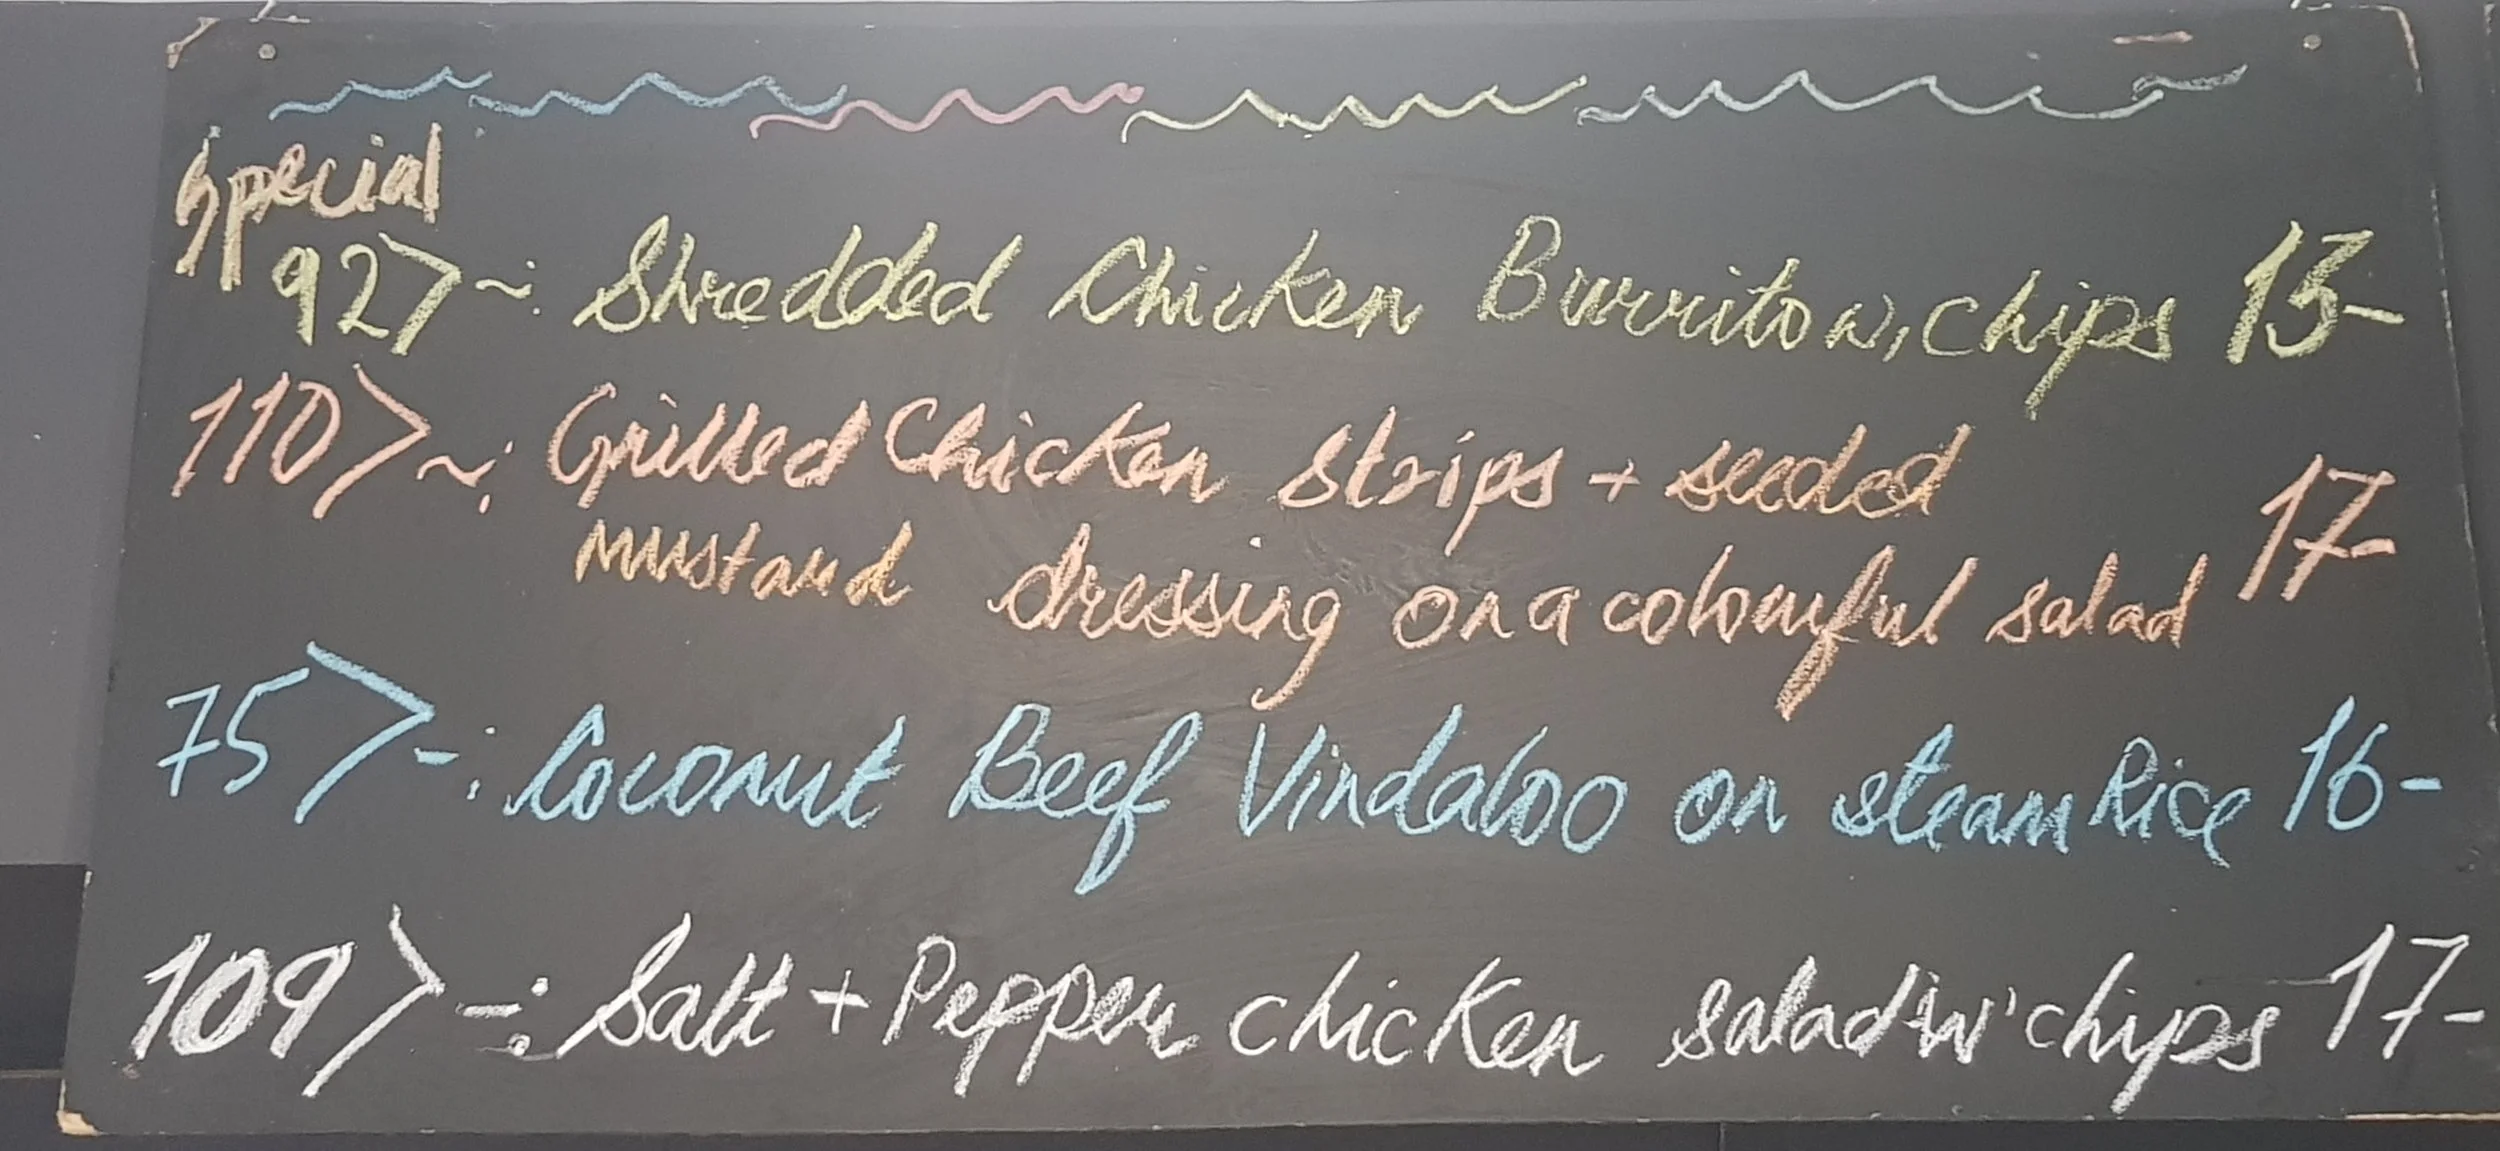 Special
92>~: Shredded Chicken Burrito w, chips 15-
110>~: Grilled Chicken strips + seeded
mustard dressing on a colourful salad 17-
75>-: Coconut Beef Vindaloo on steam Rice 16-
109>-: Salt + Pepper chicken salad w' chips 17-